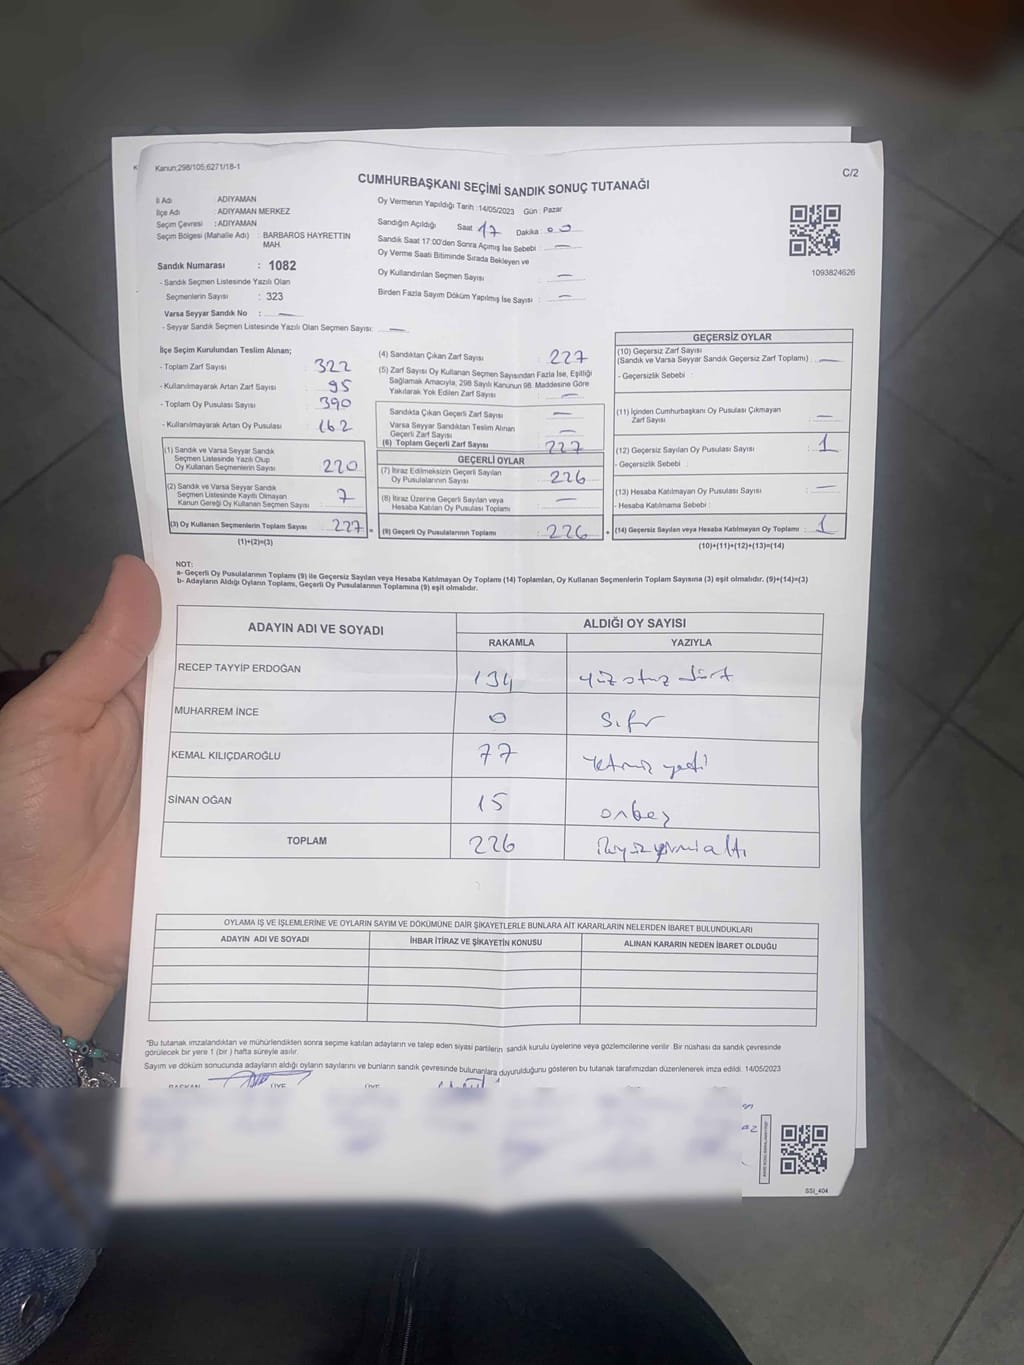 Kanun;298/105;6271/18-1
C/2
CUMHURBAŞKANI SEÇİMİ SANDIK SONUÇ TUTANAĞI
İl Adı ADIYAMAN
İlçe Adı : ADIYAMAN MERKEZ
Seçim Çevresi : ADIYAMAN
Seçim Bölgesi (Mahalle Adı) : BARBAROS HAYRETTİN
MAH.
Sandık Numarası : 1082
- Sandık Seçmen Listesinde Yazılı Olan
Seçmenlerin Sayısı : 323
Varsa Seyyar Sandık No : —
- Seyyar Sandık Seçmen Listesinde Yazılı Olan Seçmen Sayısı: —
Oy Vermenin Yapıldığı Tarih :14/05/2023 Gün : Pazar
Sandığın Açıldığı Saat 17 Dakika : 00
Sandık Saat 17:00'den Sonra Açılmış İse Sebebi : —
Oy Verme Saati Bitiminde Sırada Bekleyen ve
Oy Kullandırılan Seçmen Sayısı : —
Birden Fazla Sayım Döküm Yapılmış İse Sayısı : —
1093824626
İlçe Seçim Kurulundan Teslim Alınan;
- Toplam Zarf Sayısı : 322
- Kullanılmayarak Artan Zarf Sayısı : 95
- Toplam Oy Pusulası Sayısı : 390
- Kullanılmayarak Artan Oy Pusulası : 162
(1) Sandık ve Varsa Seyyar Sandık
Seçmen Listesinde Yazılı Olup
Oy Kullanan Seçmenlerin Sayısı : 220
(2) Sandık ve Varsa Seyyar Sandık
Seçmen Listesinde Kayıtlı Olmayan
Kanun Gereği Oy Kullanan Seçmen Sayısı : 7
(3) Oy Kullanan Seçmenlerin Toplam Sayısı : 227
(1)+(2)=(3)
(4) Sandıktan Çıkan Zarf Sayısı : 227
(5) Zarf Sayısı Oy Kullanan Seçmen Sayısından Fazla İse, Eşitliği
Sağlamak Amacıyla, 298 Sayılı Kanunun 98. Maddesine Göre
Yakılarak Yok Edilen Zarf Sayısı : —
Sandıkta Çıkan Geçerli Zarf Sayısı : —
Varsa Seyyar Sandıktan Teslim Alınan
Geçerli Zarf Sayısı : —
(6) Toplam Geçerli Zarf Sayısı : 227
GEÇERLİ OYLAR
(7) İtiraz Edilmeksizin Geçerli Sayılan
Oy Pusulalarının Sayısı : 226
(8) İtiraz Üzerine Geçerli Sayılan veya
Hesaba Katılan Oy Pusulası Toplamı : —
(9) Geçerli Oy Pusulalarının Toplamı : 226
GEÇERSİZ OYLAR
(10) Geçersiz Zarf Sayısı
(Sandık ve Varsa Seyyar Sandık Geçersiz Zarf Toplamı) : —
- Geçersizlik Sebebi :
(11) İçinden Cumhurbaşkanı Oy Pusulası Çıkmayan
Zarf Sayısı : —
(12) Geçersiz Sayılan Oy Pusulası Sayısı : 1
- Geçersizlik Sebebi :
(13) Hesaba Katılmayan Oy Pusulası Sayısı : —
- Hesaba Katılmama Sebebi :
(14) Geçersiz Sayılan veya Hesaba Katılmayan Oy Toplamı : 1
(10)+(11)+(12)+(13)=(14)
NOT:
a- Geçerli Oy Pusulalarının Toplamı (9) ile Geçersiz Sayılan veya Hesaba Katılmayan Oy Toplamı (14) Toplamları, Oy Kullanan Seçmenlerin Toplam Sayısına (3) eşit olmalıdır. (9)+(14)=(3)
b- Adayların Aldığı Oyların Toplamı, Geçerli Oy Pusulalarının Toplamına (9) eşit olmalıdır.
ADAYIN ADI VE SOYADI ALDIĞI OY SAYISI
RAKAMLA YAZIYLA
RECEP TAYYİP ERDOĞAN 134 yüz otuz dört
MUHARREM İNCE 0 sıfır
KEMAL KILIÇDAROĞLU 77 Yetmiş yedi
SİNAN OĞAN 15 onbeş
TOPLAM 226 ikiyüzyirmialtı
OYLAMA İŞ VE İŞLEMLERİNE VE OYLARIN SAYIM VE DÖKÜMÜNE DAİR ŞİKAYETLERLE BUNLARA AİT KARARLARIN NELERDEN İBARET BULUNDUKLARI
ADAYIN ADI VE SOYADI İHBAR İTİRAZ VE ŞİKAYETİN KONUSU ALINAN KARARIN NEDEN İBARET OLDUĞU
"Bu tutanak imzalandıktan ve mühürlendikten sonra seçime katılan adayların ve talep eden siyasi partilerin sandık kurulu üyelerine veya gözlemcilerine verilir. Bir nüshası da sandık çevresinde
görülecek bir yere 1 (bir ) hafta süreyle asılır.
Sayım ve döküm sonucunda adayların aldığı oyların sayılarını ve bunların sandık çevresinde bulunanlara duyurulduğunu gösteren bu tutanak tarafımızdan düzenlenerek imza edildi. 14/05/2023
BAŞKAN ÜYE ÜYE
SSİ_404